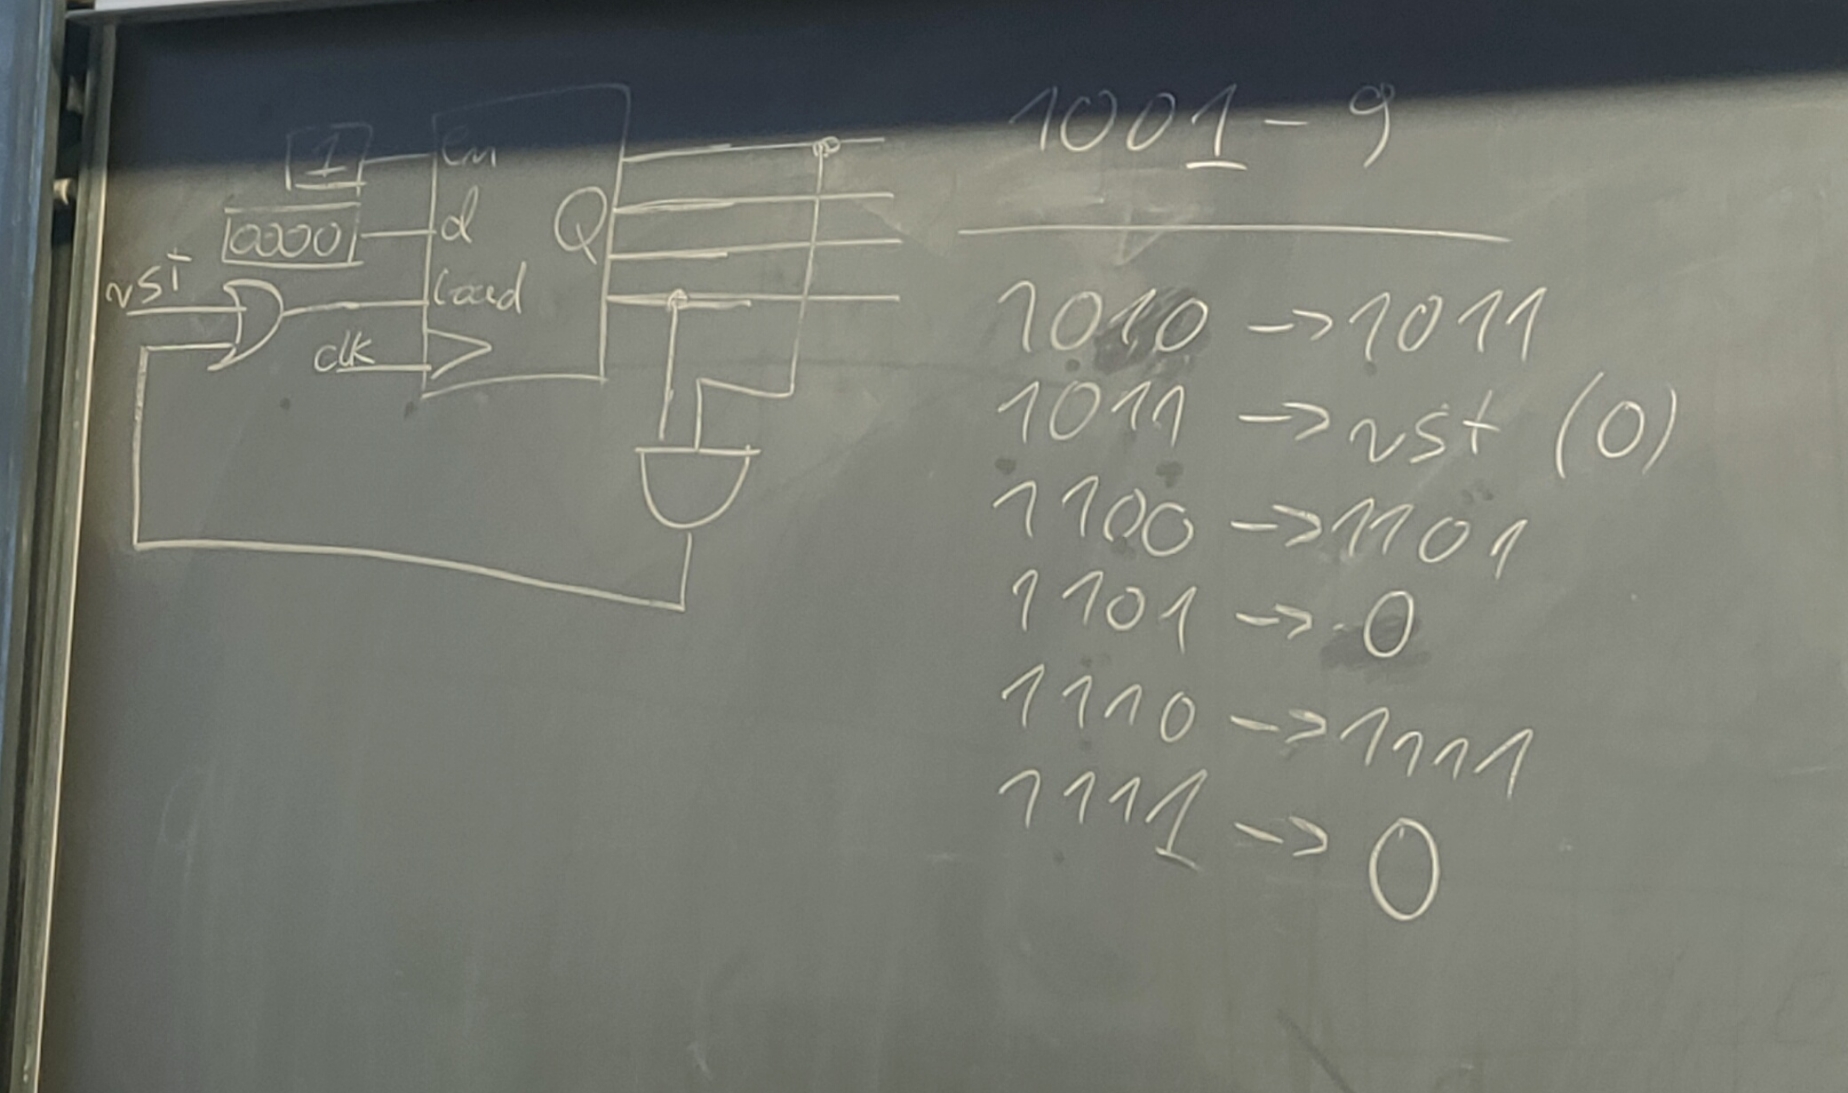 1
en
0000
d
Q
rst
load
clk
1001 - 9
1010 -> 1011
1011 -> rst (0)
1100 -> 1101
1101 -> 0
1110 -> 1111
1111 -> 0